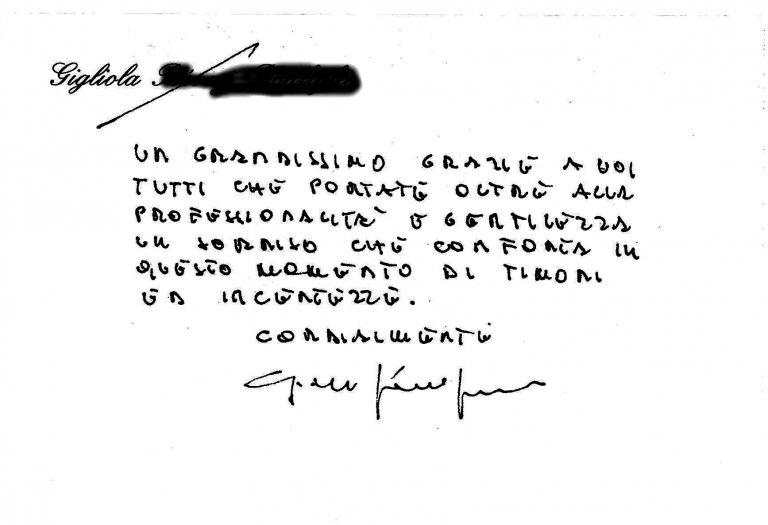 Gigliola
UN GRANDISSIMO GRAZIE A VOI
TUTTI CHE PORTATE OLTRE ALLA
PROFESSIONALITÀ E GENTILEZZA
UN SORRISO CHE CONFORTA IN
QUESTO MOMENTO DI TIMORI
ED INCERTEZZE.
CORDIALMENTE